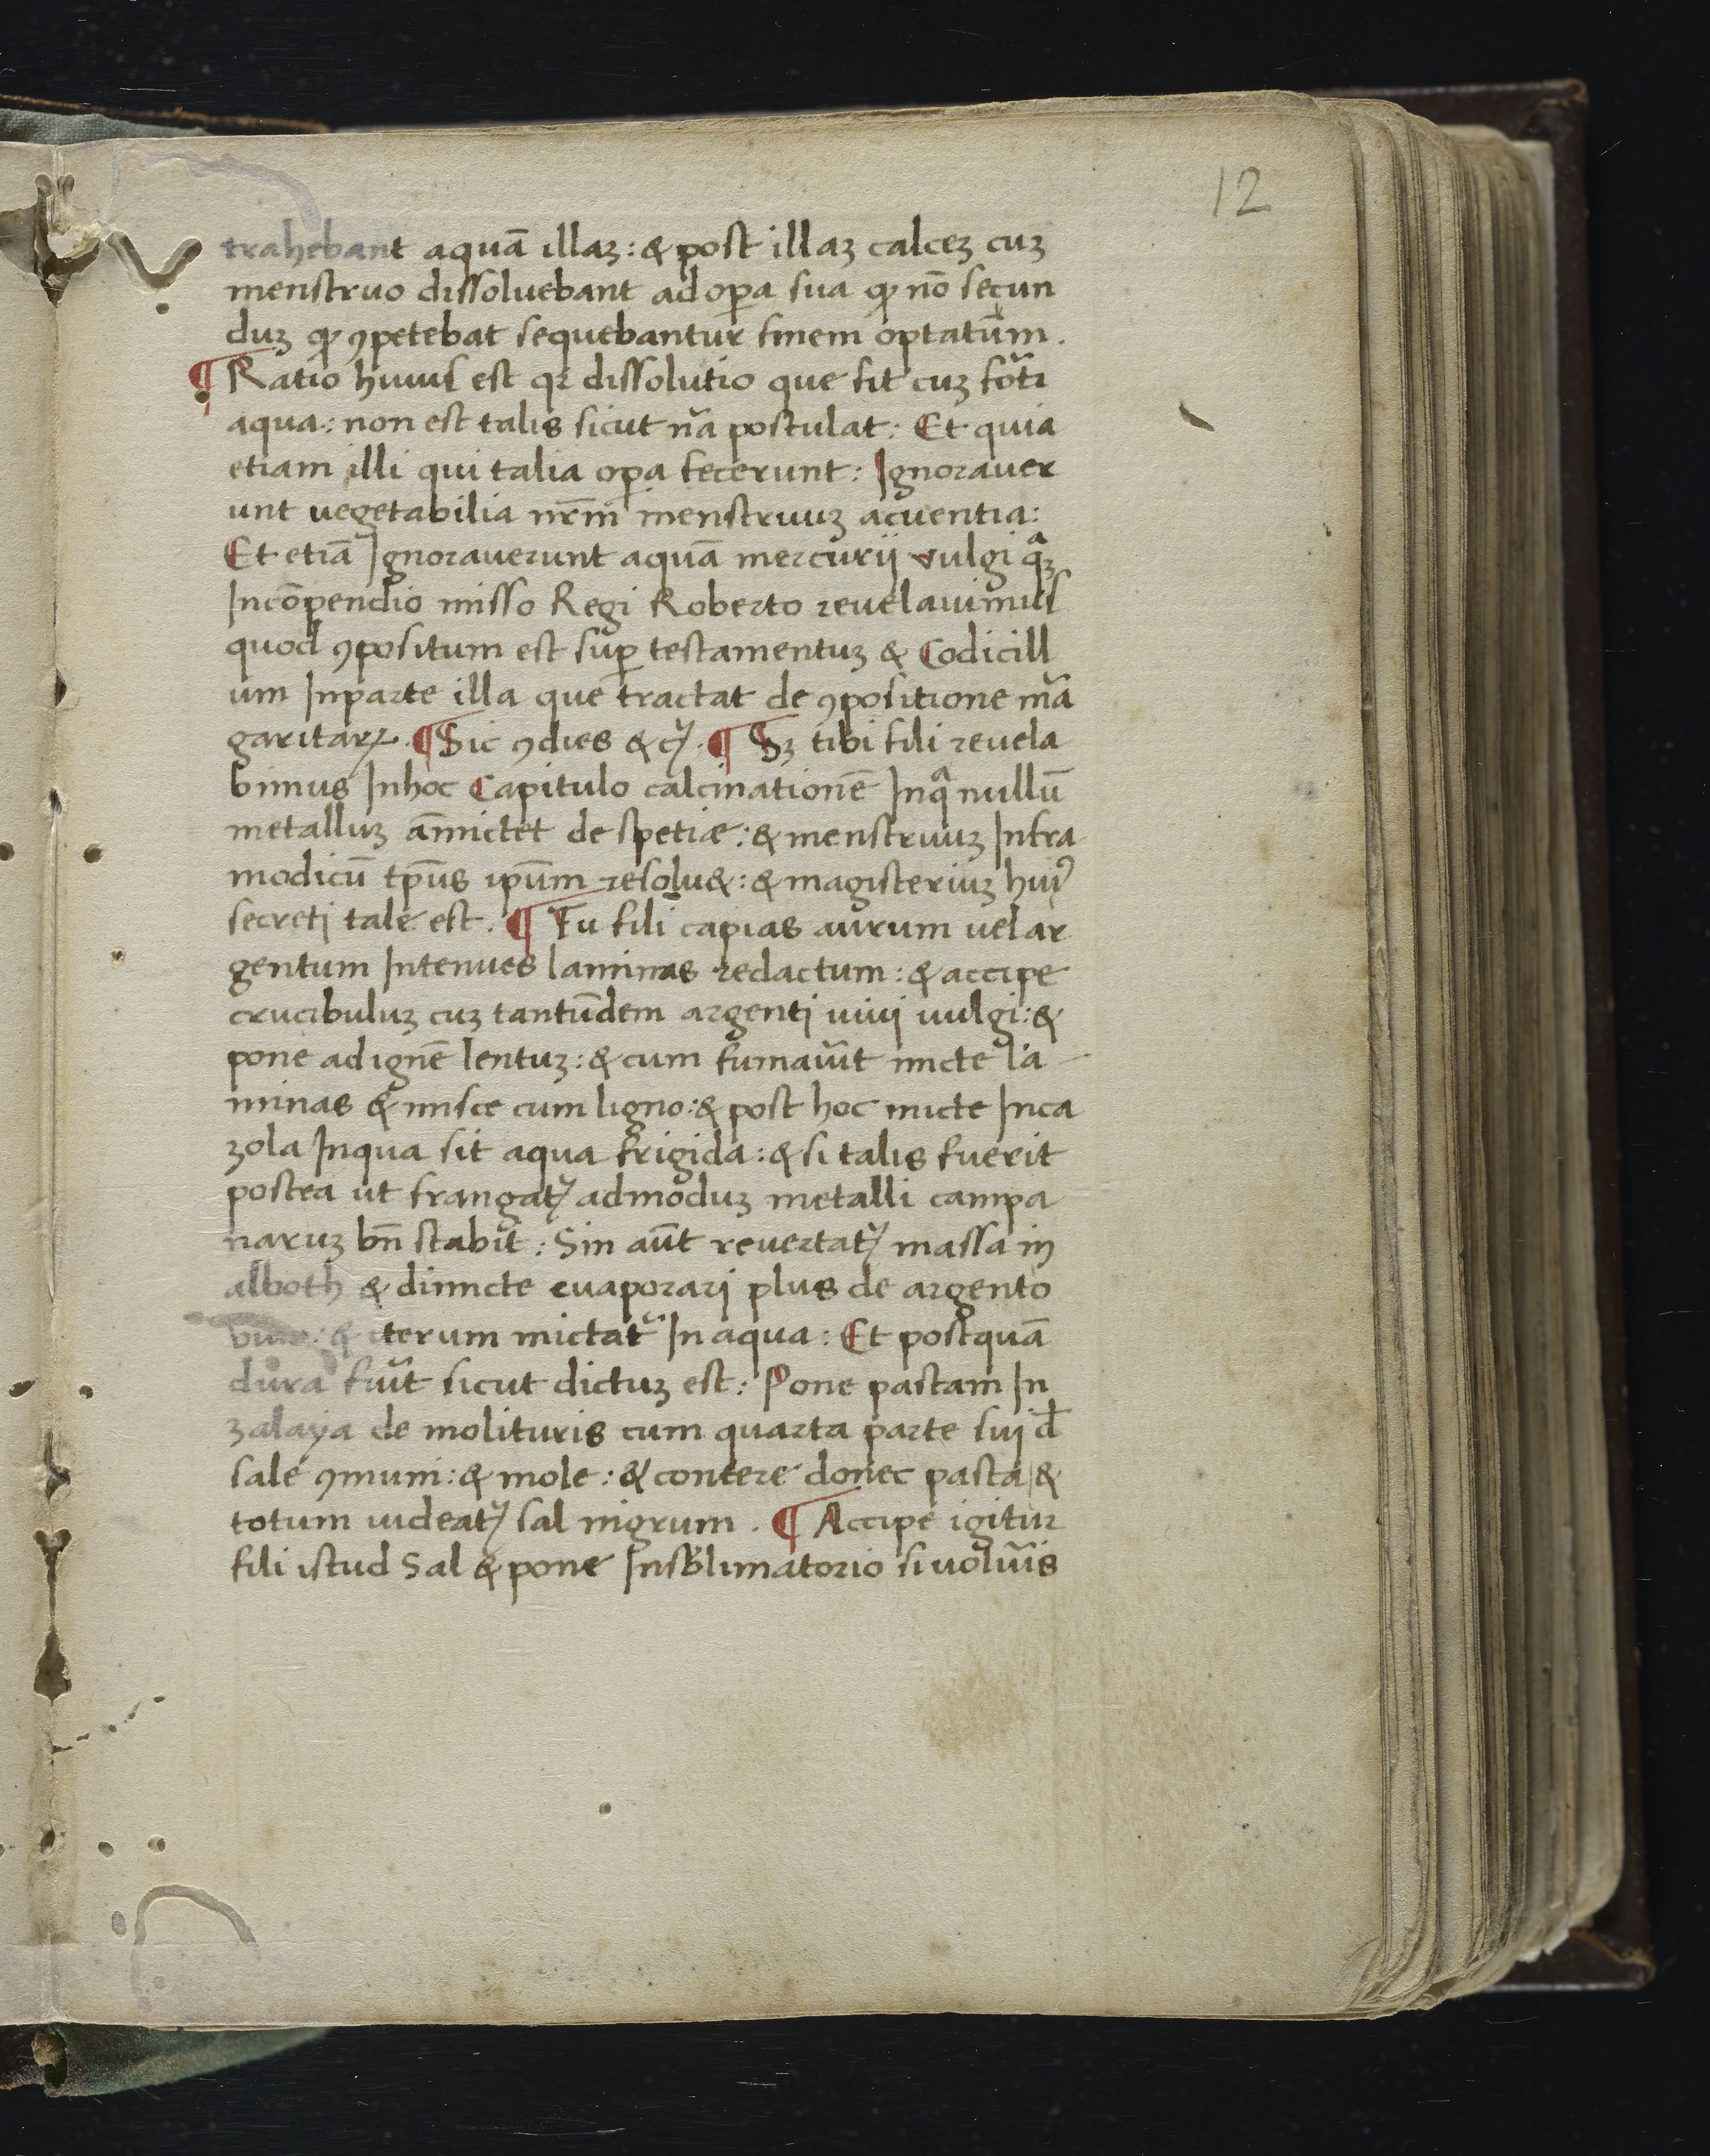 12
trahebant aquā illaꝫ: & post illaꝫ calceꝫ cuꝫ
menstruo dissoluebant ad oꝑa sua ꝙ nō secun
duꝫ ꝙ ꝯpetebat sequebantur finem optatūm.
¶ Ratio huius est qꝛ dissolutio que fit cuꝫ fōti
aqua: non est talis sicut nā postulat: Et quia
etiam illi qui talia oꝑa fecerunt: Ignorauer
unt vegetabilia nr̄m menstruuꝫ acuentia:
Et etiā Ignorauerunt aquā mercurij vulgi quāꝫ
Incōpendio misso Regi Roberto reuelauimus
quod ꝯpositum est suꝑ testamentuꝫ & Codicill
um Inparte illa que tractat de ꝯpositione mā
garitaꝝ. ¶ Sic ꝯdies &cꝭ. ¶ Sꝫ tibi fili reuela
bimus Inhoc Capitulo calcinationē Inqᵃ nullū
metalluꝫ am̄ictet de spetiæ: & menstruuꝫ Infra
modicū tp̄us ip̄um resolu&: & magisteriuꝫ huiꝰ
secreti tale est. ¶ Tu fili capias aurum uel ar
gentum Intenues laminas redactum: & accipe
crucibuluꝫ cuꝫ tantūdem argenti uiui uulgi: &
pone ad ignē lentuꝫ: & cum fumau̾it micte la
minas & misce cum ligno: & post hoc micte Inca
ʒola Inqua sit aqua frigida: & si talis fuerit
postea ut frangatꝭ admoduꝫ metalli campa
naruꝫ bn̄ stabit: Sin aūt reuertatꝭ massa in
alboth & dimicte euaporari plus de argento
viuo: & iterum mictat᷑ In aqua: Et postquā
dura fiu̾it sicut dictuꝫ est: Pone pastam In
ʒalaya de molituris cum quarta parte sui đ
sale ꝯmuni: & mole: & contere donec pasta &
totum uideatꝭ sal nigrum. ¶ Accipe igitur
fili istud Sal & pone Insb̾limatorio si uolu̾is